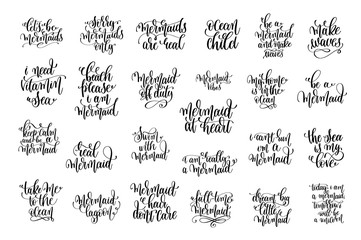 let's be
mermaids
sorry
mermaids
only
mermaids
are real
ocean
child
be a
mermaid
and make
waves
make
waves
i need
vitamin
sea
beach
please
i am
mermaid
mermaid
off duty
mermaid
vibes
my home
is in the
ocean
be a
mermaid
keep calm
and be a
mermaid
real
mermaid
swim
with
mermaid
mermaid
at heart
i am really
a mermaid
i can't run
i'm a
mermaid
the sea
is my
love
take me
to the
ocean
mermaid
lagoon
mermaid
hair
don't care
full time
mermaid
dream big
little
mermaid
today i am
a mermaid
tomorrow i
will be a
unicorn